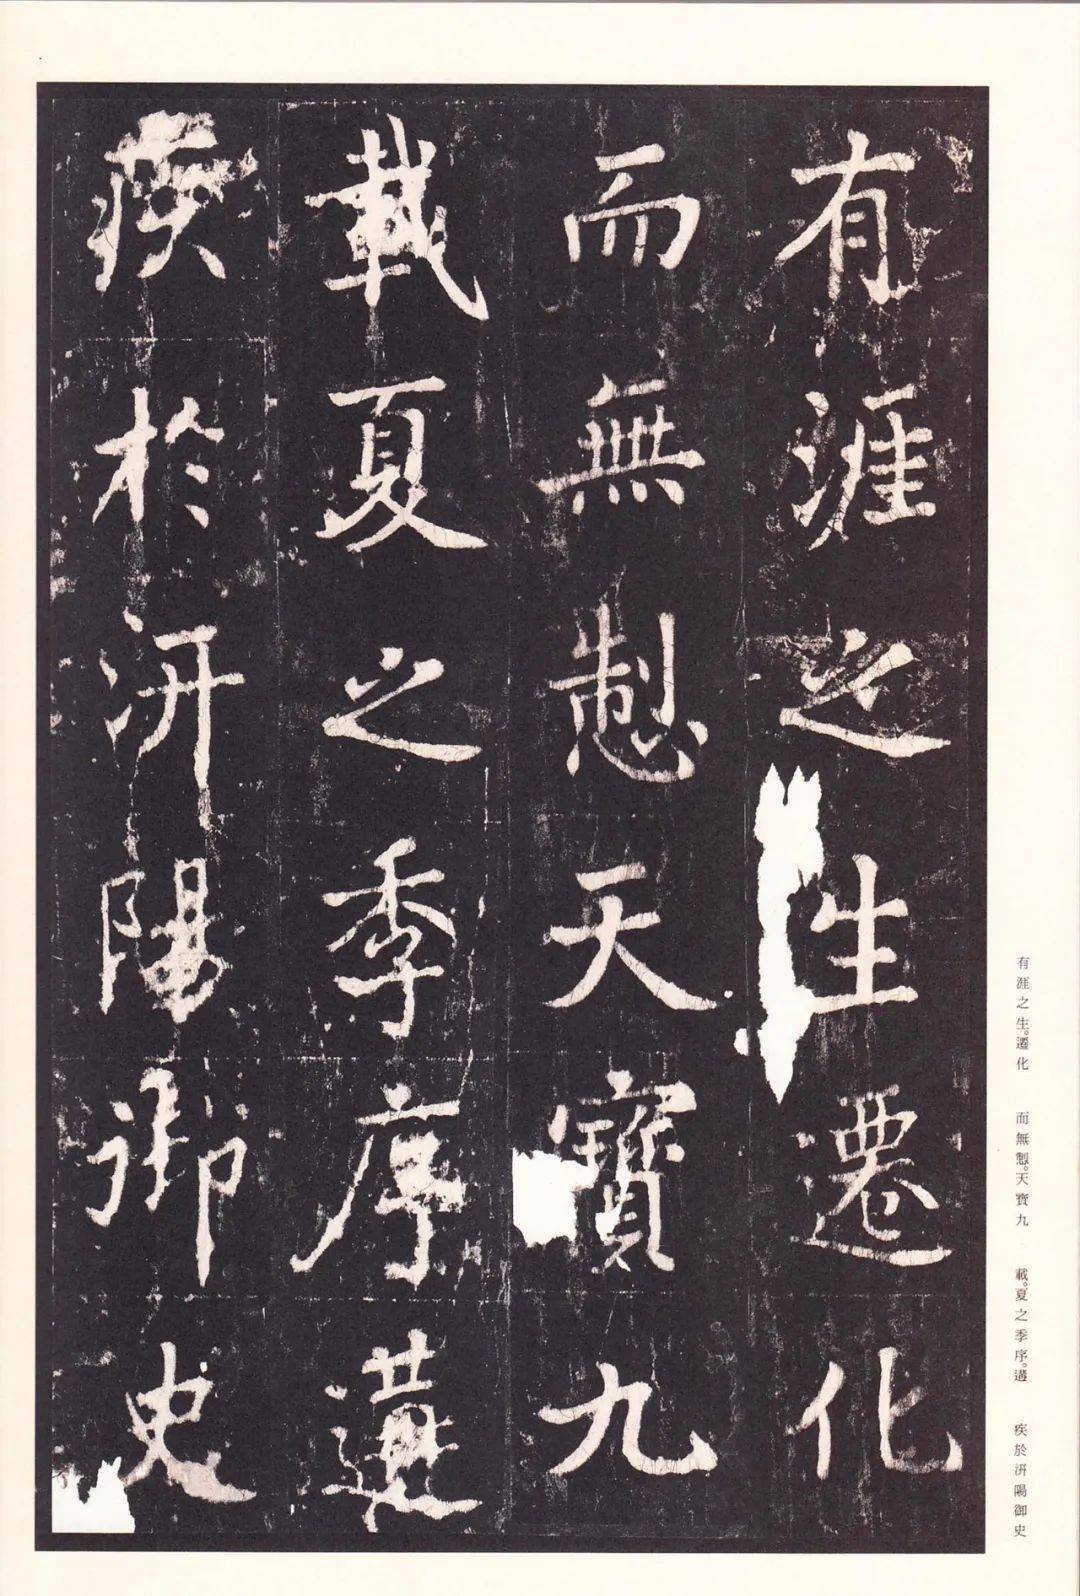 有涯之生遷化
而無㓡天寶九
載夏之季序遘
疾於汧陽御史
有涯之生。遷化 而無㓡。天寶九 載。夏之季序。遘 疾於汧陽御史